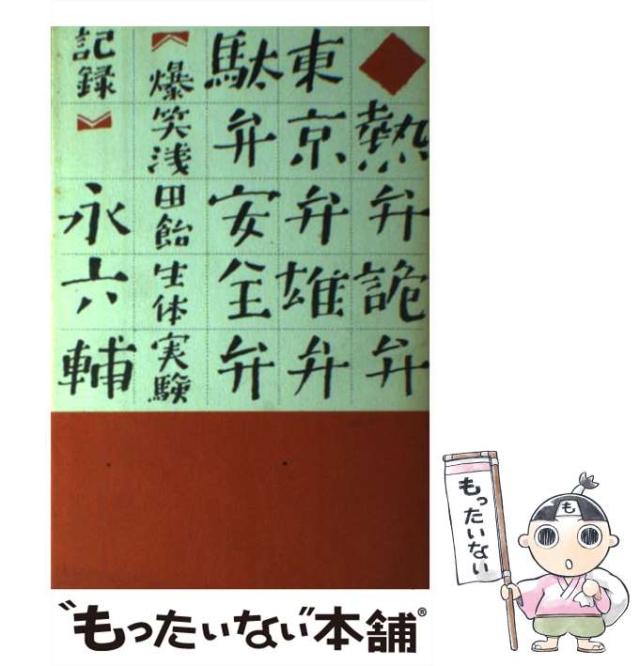 ◆熱弁詭弁
東京弁雄弁
駄弁安全弁
《爆笑浅田飴生体実験
記録》
永六輔
"もったいない"本舗®
もったいない
も